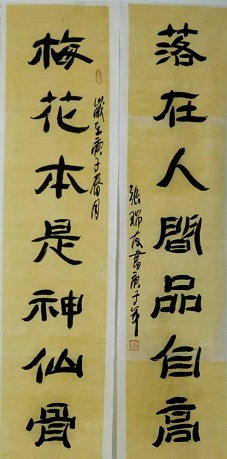 落在人間品自高
張瑞友書庚子年
歲在庚子春月
梅花本是神仙骨